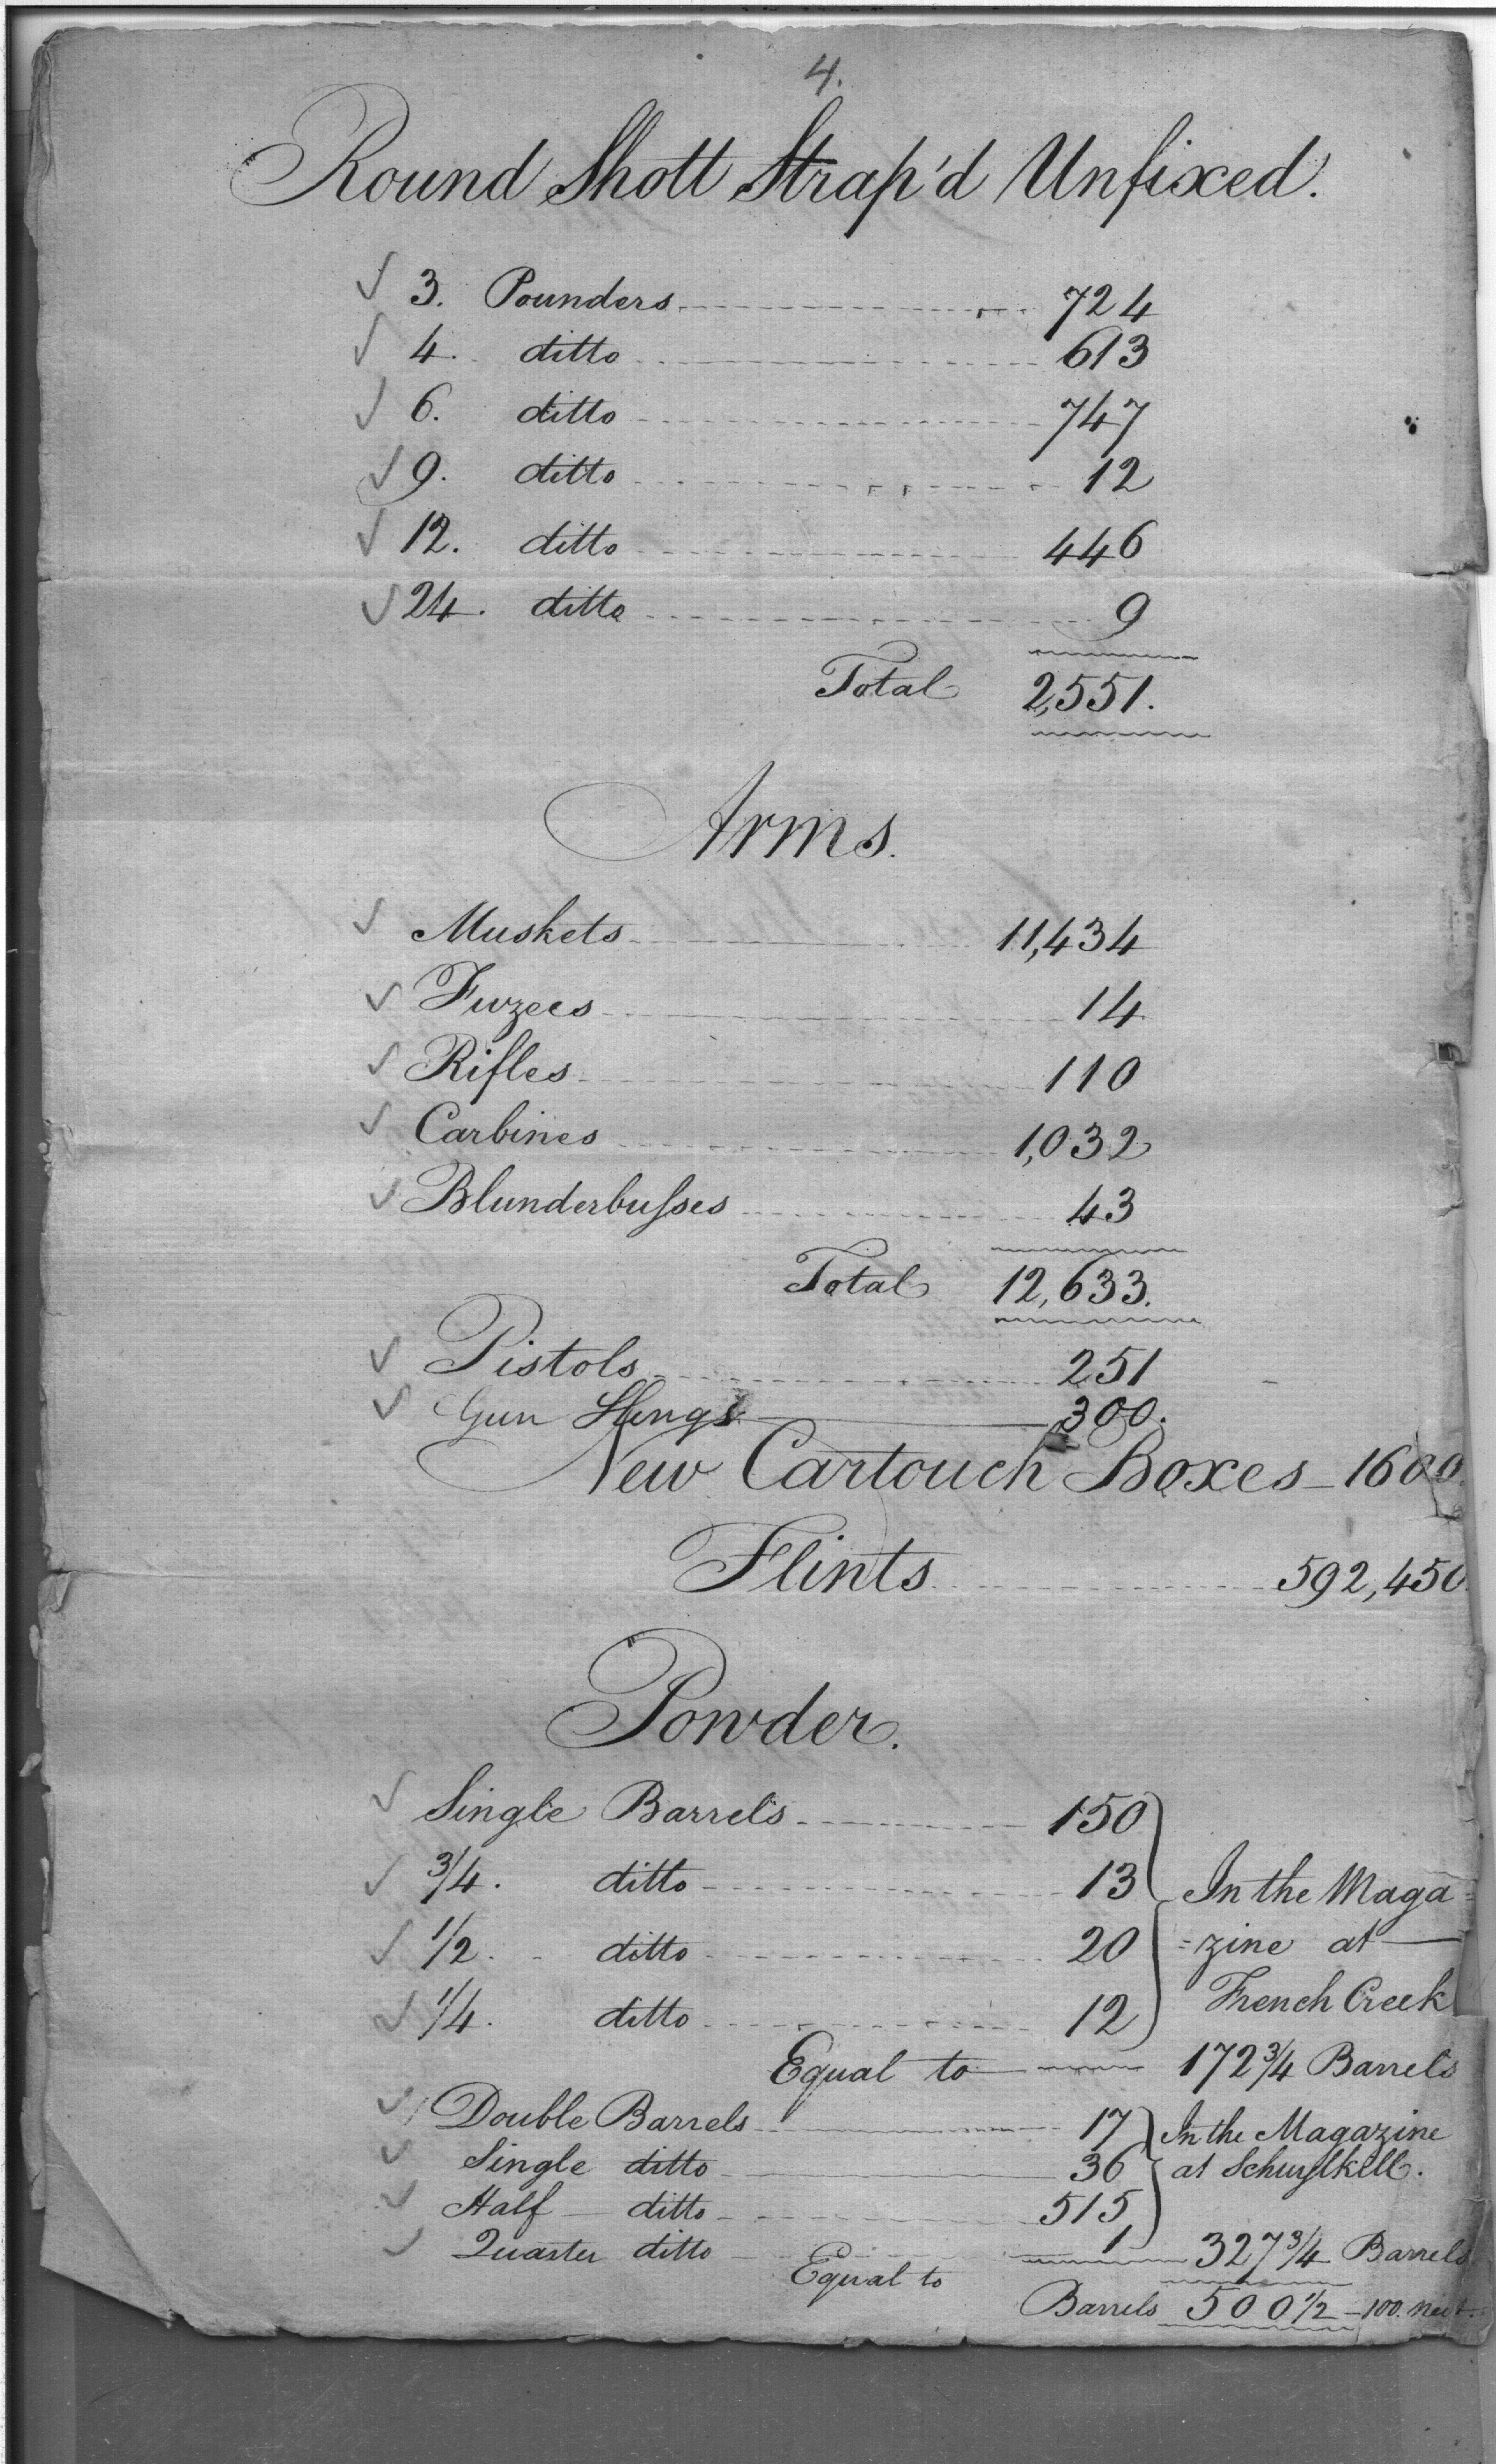 4.
Round Shott Strap'd Unfixed.
3. Pounders 724
4. ditto 613
6. ditto 747
9. ditto 12
12. ditto 446
24. ditto 9
Total 2,551.
Arms.
Muskets 11,434
Fuzees 14
Rifles 110
Carbines 1,032
Blunderbuſses 43
Total 12,633.
Pistols 251
Gun Slings 300.
New Cartouch Boxes 1600.
Flints 592,450
Powder.
Single Barrels 150
3/4. ditto 13 In the Maga=
1/2. ditto 20 =zine at
1/4. ditto 12 French Creek
Equal to 172 3/4 Barrels
Double Barrels 17 In the Magazine
Single ditto 36 at Schuylkill.
Half ditto 515
Quarter ditto 1
Equal to 327 3/4 Barrels
Barrels 500 1/2 - 100. neet.